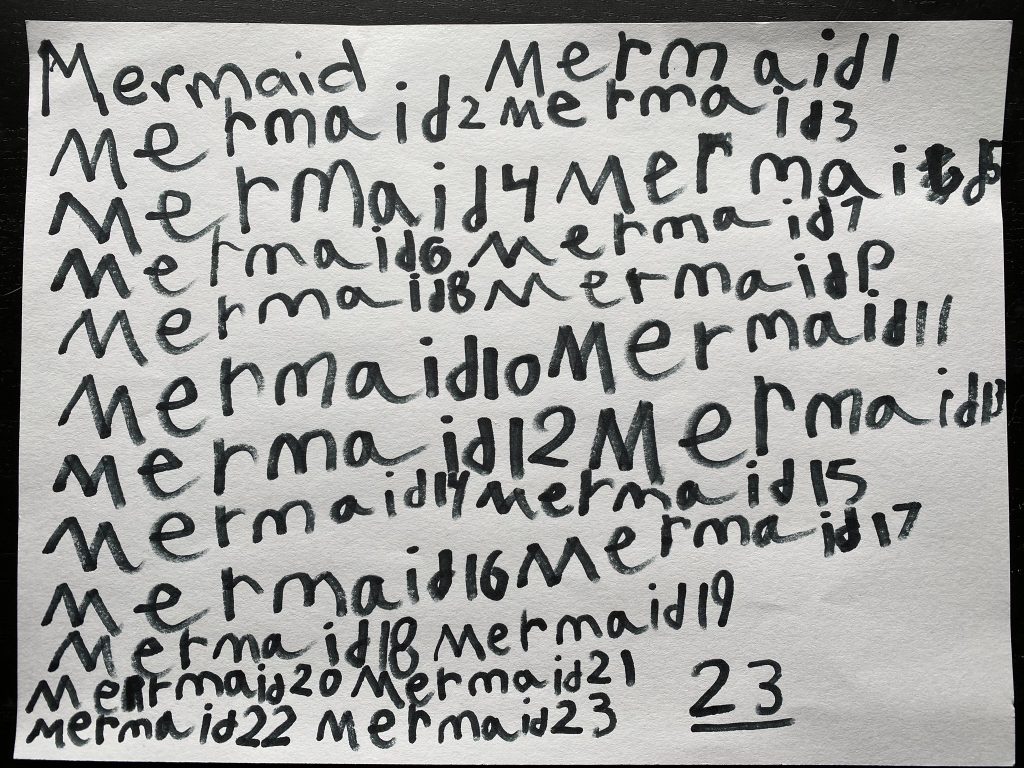 Mermaid Mermaid1
Mermaid2 Mermaid3
Mermaid4 Mermaid5
Mermaid6 Mermaid7
Mermaid8 Mermaid9
Mermaid10 Mermaid11
Mermaid12 Mermaid13
Mermaid14 Mermaid15
Mermaid16 Mermaid17
Mermaid18 Mermaid19
Mermaid20 Mermaid21
Mermaid22 Mermaid23
23